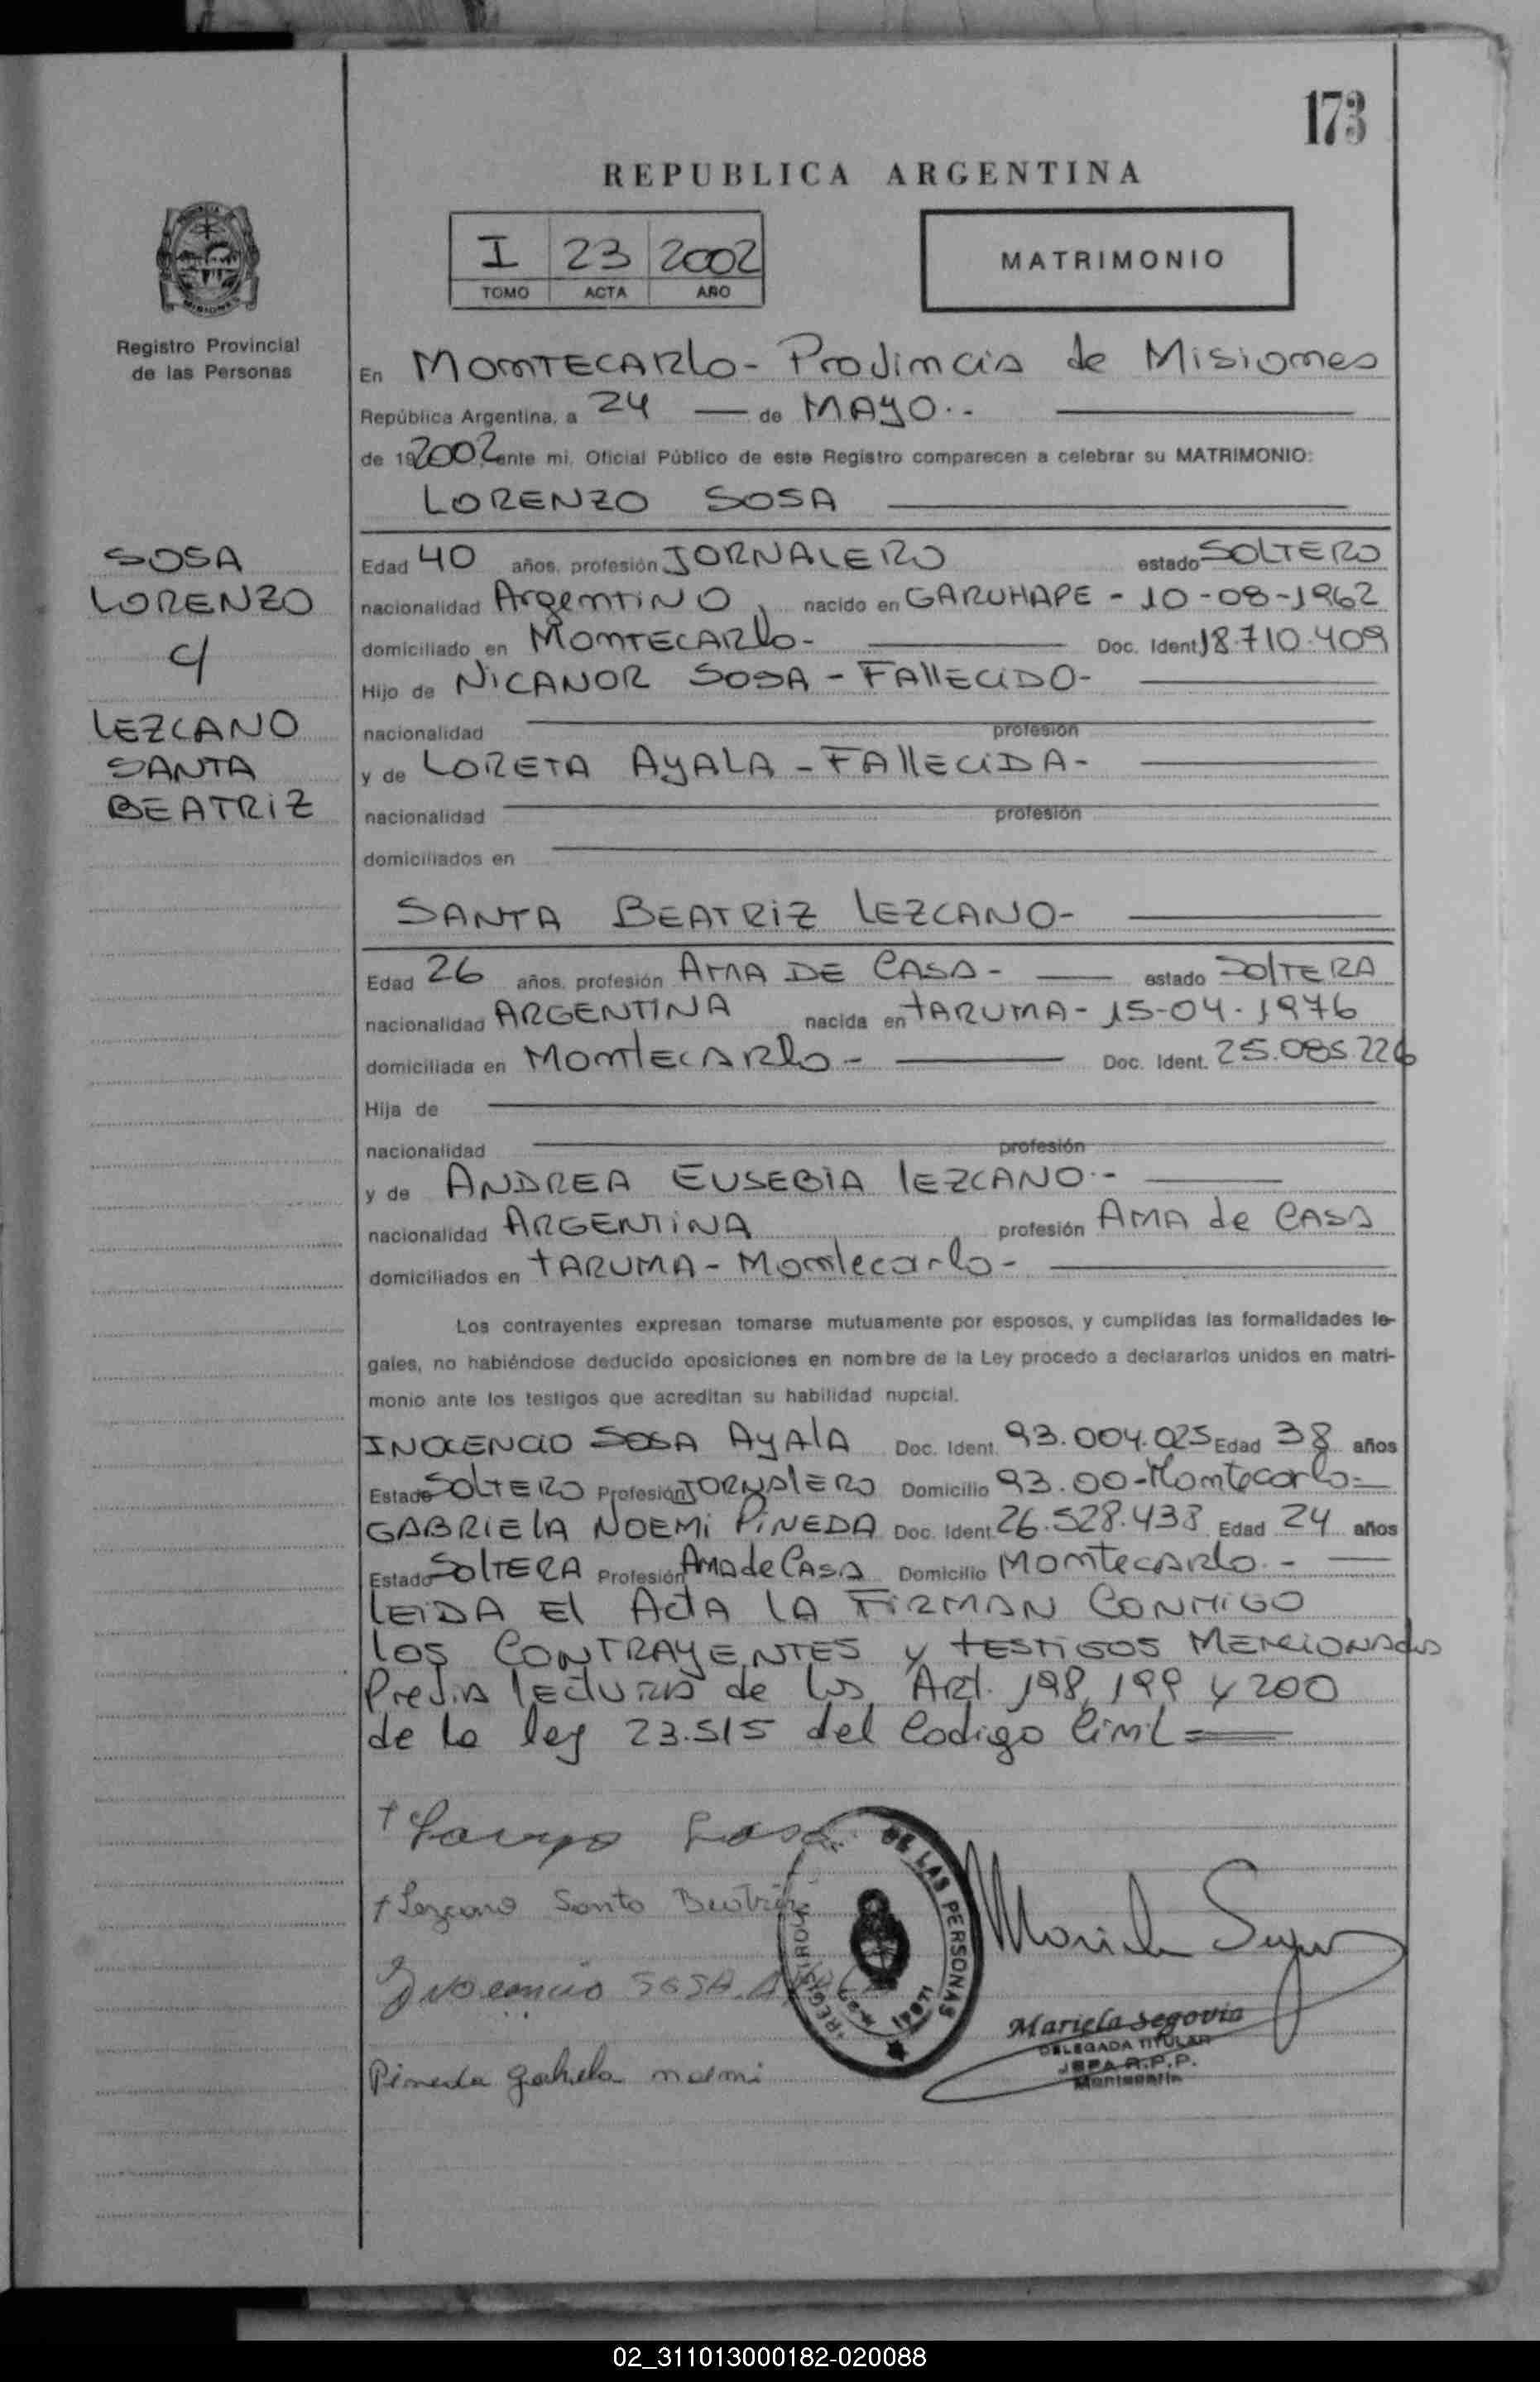 173
REPUBLICA ARGENTINA
I 23 2002
TOMO ACTA AÑO
MATRIMONIO
Registro Provincial
de las Personas
En MONTECARLO - Provincia de Misiones
República Argentina, a 24 — de MAYO.-
de 192002 ante mi, Oficial Público de este Registro comparecen a celebrar su MATRIMONIO:
LORENZO SOSA
SOSA
LORENZO
c/
LEZCANO
SANTA
BEATRIZ
Edad 40 años, profesión JORNALERO estado SOLTERO
nacionalidad ArgentiNO, nacido en GARUHAPE - 10-08-1962
domiciliado en MONTECARlo - Doc. Ident. 18.710.409
Hijo de NiCANOR SOSA - FAllECiDO-
nacionalidad profesión
y de LORETA AyALA - FAllECiDA-
nacionalidad profesión
domiciliados en
SANTA BEATRiZ LEZCANO-
Edad 26 años, profesión AMA DE CASA - estado SOlTERA
nacionalidad ARGENTINA nacida en tARUMA - 15-04-1976
domiciliada en MONTECARlo - Doc. Ident. 25.085.226
Hija de
nacionalidad profesión
y de ANDREA EUSEBiA lEZCANO.-
nacionalidad ARGENTiNA profesión AMA de CASA
domiciliados en tARUMA - Montecarlo -
Los contrayentes expresan tomarse mutuamente por esposos, y cumplidas las formalidades le-
gales, no habiéndose deducido oposiciones en nombre de la Ley procedo a declararlos unidos en matri-
monio ante los testigos que acreditan su habilidad nupcial.
INOCENCiO SOSA AyAlA Doc. Ident. 93.004.025 Edad 38 años
Estado SOLTERO Profesión JORNAlERO Domicilio 93.00-Montecarlo=
GABRIElA NOEMi PiNEDA Doc. Ident. 26.528.438 Edad 24 años
Estado SOlTERA Profesión Ama de CASA Domicilio Montecarlo.-
LEiDA El ActA lA FiRMAN CONMiGO
los CONTRAYENTES y tESTiGOS MENCIONAdos
Previa lectura de los Art. 198, 199 y 200
de la ley 23.515 del Codigo Civil =
Sosa
Lezcano Santa Beatriz
Inocencio SOSA AyALA
Pineda gabriela noemi
REGISTRO DE LAS PERSONAS
Mariela Segovia
DELEGADA TITULAR
JEFA R.P.P.
Montecarlo
02_311013000182-020088